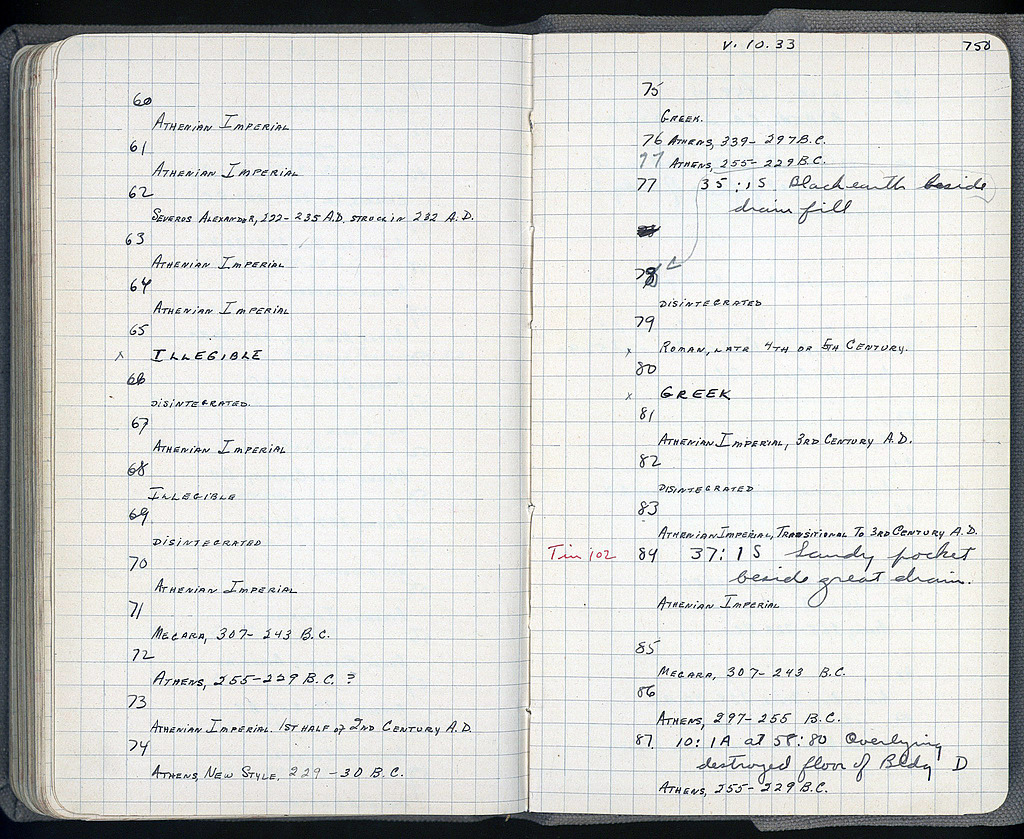 60
Athenian Imperial
61
Athenian Imperial
62
Severos Alexander, 222-235 A.D. struck in 232 A.D.
63
Athenian Imperial
64
Athenian Imperial
65
x Illegible
66
Disintegrated.
67
Athenian Imperial
68
Illegible
69
Disintegrated
70
Athenian Imperial
71
Megara, 307-243 B.C.
72
Athens, 255-229 B.C. ?
73
Athenian Imperial. 1st half of 2nd Century A.D.
74
Athens, New Style, 229-30 B.C.
V. 10. 33 750
75
Greek.
76 Athens, 339-297 B.C.
77 Athens, 255-229 B.C.
77 35:1S. Black earth beside
drain fill
78
Disintegrated
79
x Roman, late 4th or 5th Century.
80
x Greek
81
Athenian Imperial, 3rd Century A.D.
82
Disintegrated
83
Athenian Imperial, Transitional To 3rd Century A.D.
Tin 102 84 37:1S Sandy pocket
beside great drain.
Athenian Imperial
85
Megara, 307-243 B.C.
86
Athens, 297-255 B.C.
87. 10:1A at 58:80 Overlying
destroyed floor of Bldg D
Athens, 255-229 B.C.